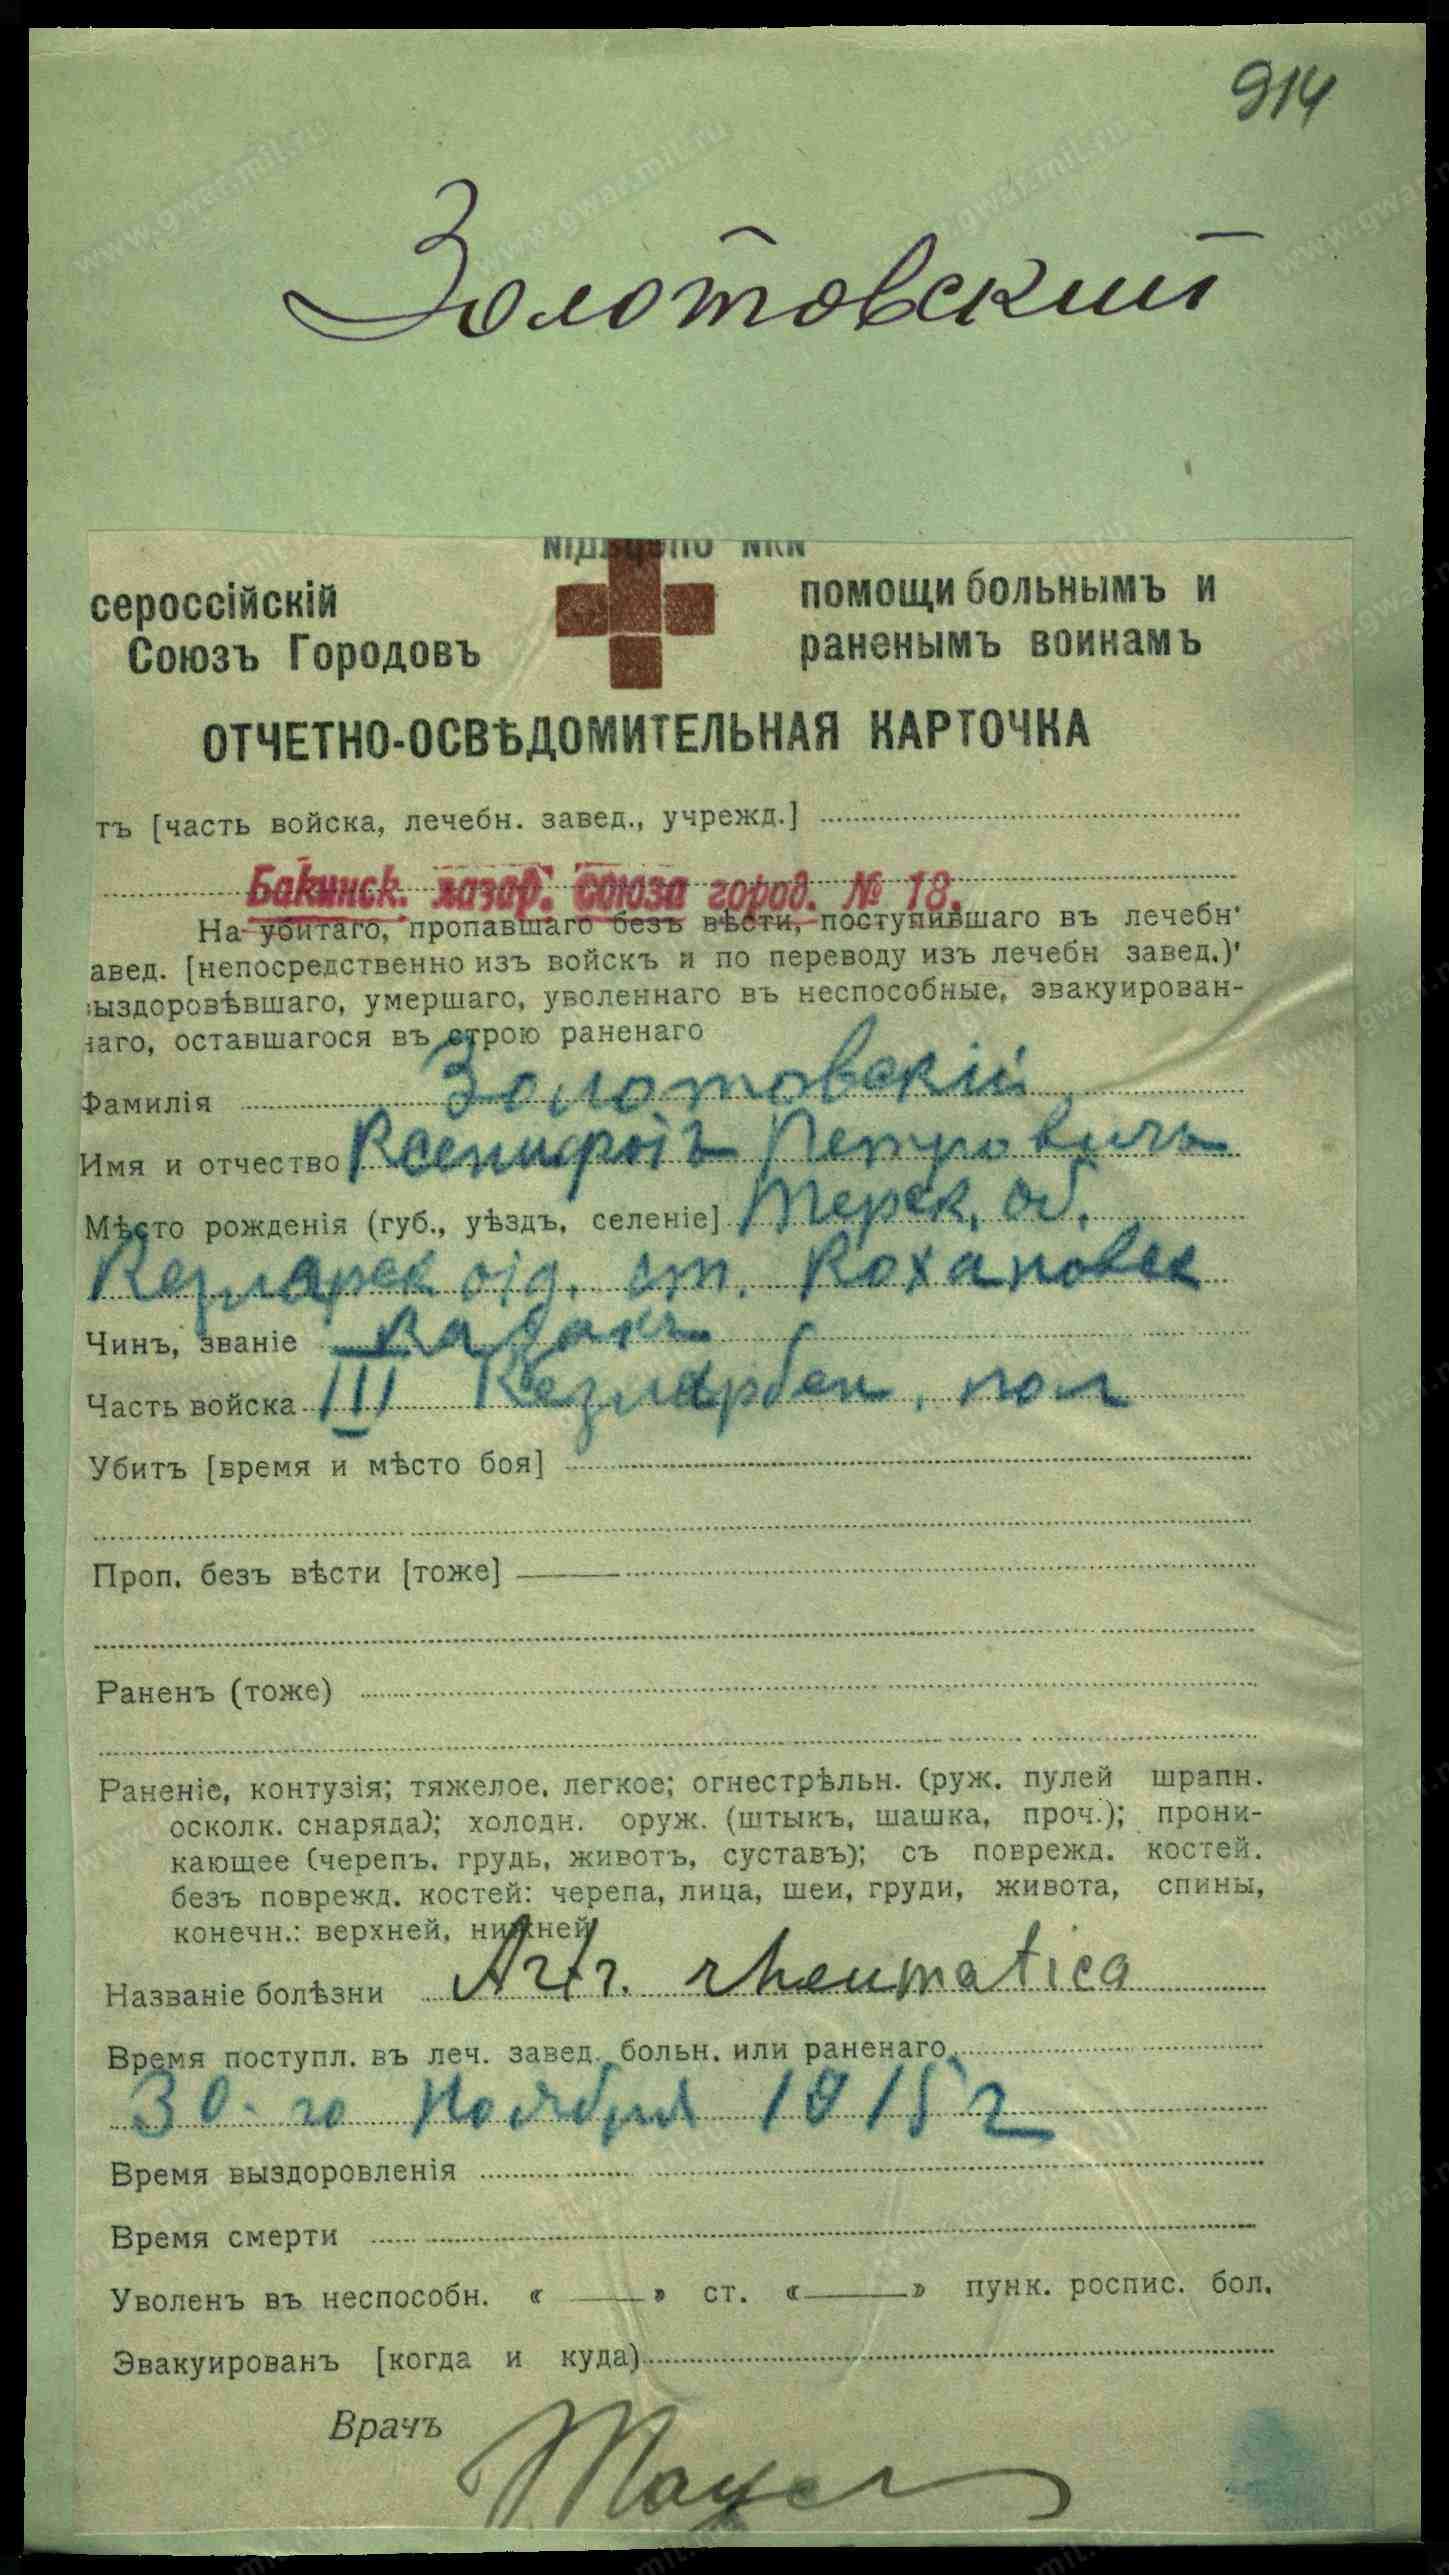 914
Золотовский
сероссійскій
Союзъ Городовъ
помощи больнымъ и
раненымъ воинамъ
ОТЧЕТНО-ОСВѢДОМИТЕЛЬНАЯ КАРТОЧКА
тъ [часть войска, лечебн. завед., учрежд.]
Бакинск. лазар. союза город. № 18.
На убитаго, пропавшаго безъ вѣсти, поступившаго въ лечебн'
авед. [непосредственно изъ войскъ и по переводу изъ лечебн завед.)'
ыздоровѣвшаго, умершаго, уволеннаго въ неспособные, эвакуирован-
наго, оставшагося въ строю раненаго
Фамилія Золотовскій
Имя и отчество Петровичъ
Мѣсто рожденія (губ., уѣздъ, селеніе] Терск. об.
Кезлярск отд. ст. Кохановск
Чинъ, званіе казакъ
Часть войска III пол
Убитъ [время и мѣсто боя]
Проп. безъ вѣсти [тоже]
Раненъ (тоже)
Раненіе, контузія; тяжелое, легкое; огнестрѣльн. (руж. пулей шрапн.
осколк. снаряда); холодн. оруж. (штыкъ, шашка, проч.); прони-
кающее (черепъ, грудь, животъ, суставъ); съ поврежд. костей.
безъ поврежд. костей: черепа, лица, шеи, груди, живота, спины,
конечн.: верхней, нижней
Названіе болѣзни Artr. rheumatica
Время поступл. въ леч. завед. больн. или раненаго
30-го Ноября 1915 г
Время выздоровленія
Время смерти
Уволенъ въ неспособн. « » ст. « » пунк. роспис. бол.
Эвакуированъ [когда и куда)
Врачъ